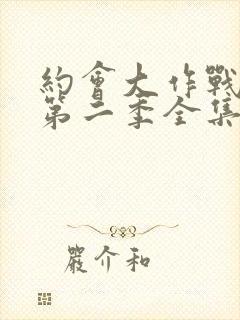 約會大作戰
第二季全集
嚴介和